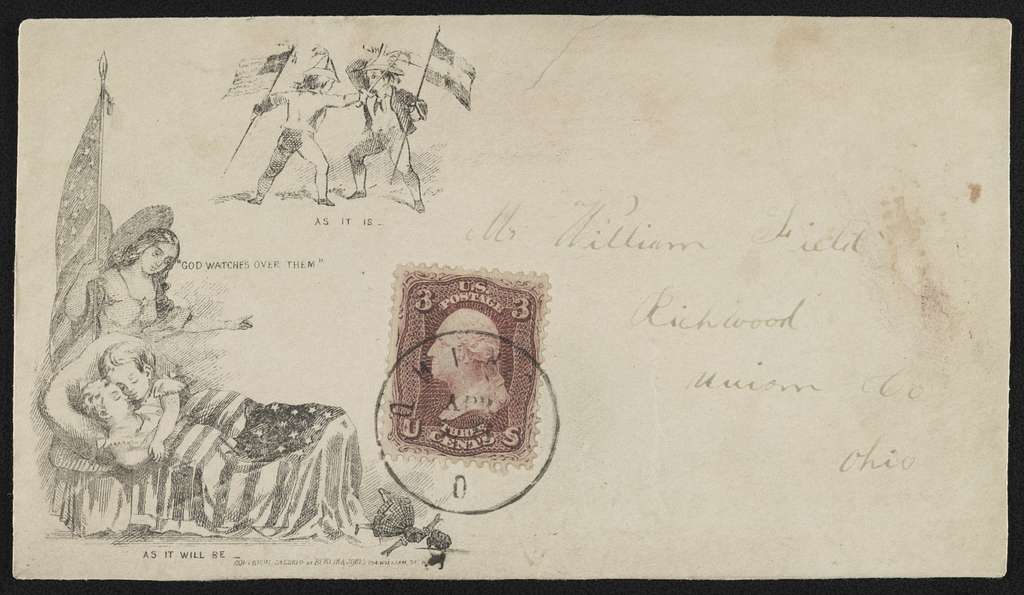 AS IT IS_
"GOD WATCHES OVER THEM"
Mr William Field
Richwood
Union Co
Ohio
3 U.S. 3
POSTAGE
U THREE S
CENTS
O
AS IT WILL BE_